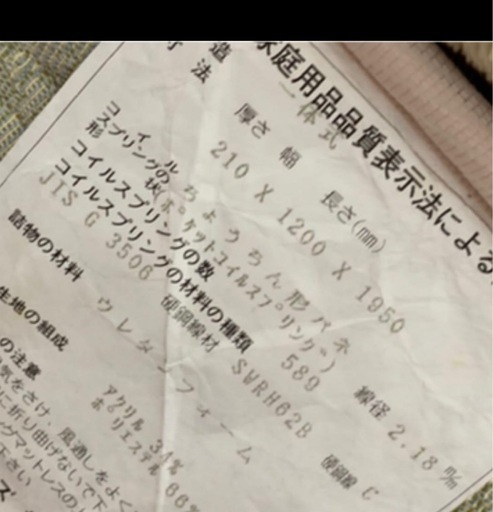 家庭用品品質表示法による
造 一体式
寸法 厚さ 幅 長さ(mm)
210 X 1200 X 1950
コイルスプリングの形状 ちょうちん形バネ
(ポケットコイルスプリング)
コイルスプリングの数 589 線径 2.18 m/m
コイルスプリングの材料の種類
JIS G 3506 硬鋼線材 SWRH62B 硬鋼線 C
詰物の材料 ウレタンフォーム
生地の組成 アクリル 34%
ポリエステル 66%
の注意
気をさけ、風通しをよく
に折り曲げないで下
マットレスの
下さい